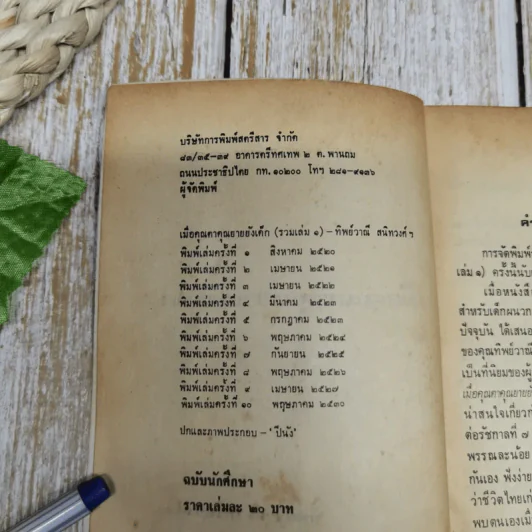 บริษัทการพิมพ์สตรีสาร จำกัด
๘๓/๓๕-๓๙ อาคารตรีทศเทพ ๒ ต. พานถม
ถนนประชาธิปไตย กท. ๑๐๒๐๐ โทร ๒๘๑-๙๑๓๖
ผู้จัดพิมพ์
เมื่อคุณตาคุณยายยังเด็ก (รวมเล่ม ๑) – ทิพย์วาณี สนิทวงศ์ ฯ
พิมพ์เล่มครั้งที่ ๑ สิงหาคม ๒๕๒๐
พิมพ์เล่มครั้งที่ ๒ เมษายน ๒๕๒๑
พิมพ์เล่มครั้งที่ ๓ เมษายน ๒๕๒๒
พิมพ์เล่มครั้งที่ ๔ มีนาคม ๒๕๒๓
พิมพ์เล่มครั้งที่ ๕ กรกฎาคม ๒๕๒๓
พิมพ์เล่มครั้งที่ ๖ พฤษภาคม ๒๕๒๔
พิมพ์เล่มครั้งที่ ๗ กันยายน ๒๕๒๕
พิมพ์เล่มครั้งที่ ๘ พฤษภาคม ๒๕๒๖
พิมพ์เล่มครั้งที่ ๙ เมษายน ๒๕๒๗
พิมพ์เล่มครั้งที่ ๑๐ พฤษภาคม ๒๕๓๐
ปกและภาพประกอบ – 'ปีนัง'
ฉบับนักศึกษา
ราคาเล่มละ ๒๐ บาท
การจัดพิมพ์
เล่ม ๑) ครั้งนี้นับ
เมื่อหนังสือ
สำหรับเด็กผนวก
ปัจจุบัน ได้เสนอ
ของคุณทิพย์วาณี
เป็นที่นิยมของผู้
เมื่อคุณตาคุณยายยัง
น่าสนใจเกี่ยวก
ต่อรัชกาลที่ ๗
พรรณละน้อย
กันเอง ฟังง่าย
ว่าชีวิตไทยเก่
พบตนเองเมื